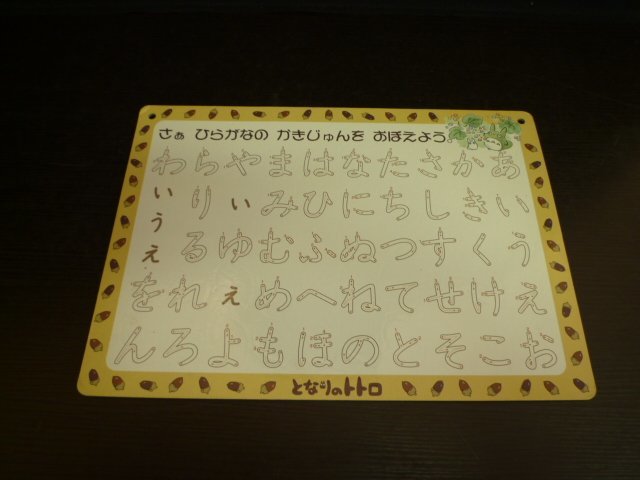 さぁ ひらがなの かきじゅんを おぼえよう。
あいうえお
かきくけこ
さしすせそ
たちつてと
なにぬねの
はひふへほ
まみむめも
やいゆえよ
らりるれろ
わいうえをん
となりのトトロ